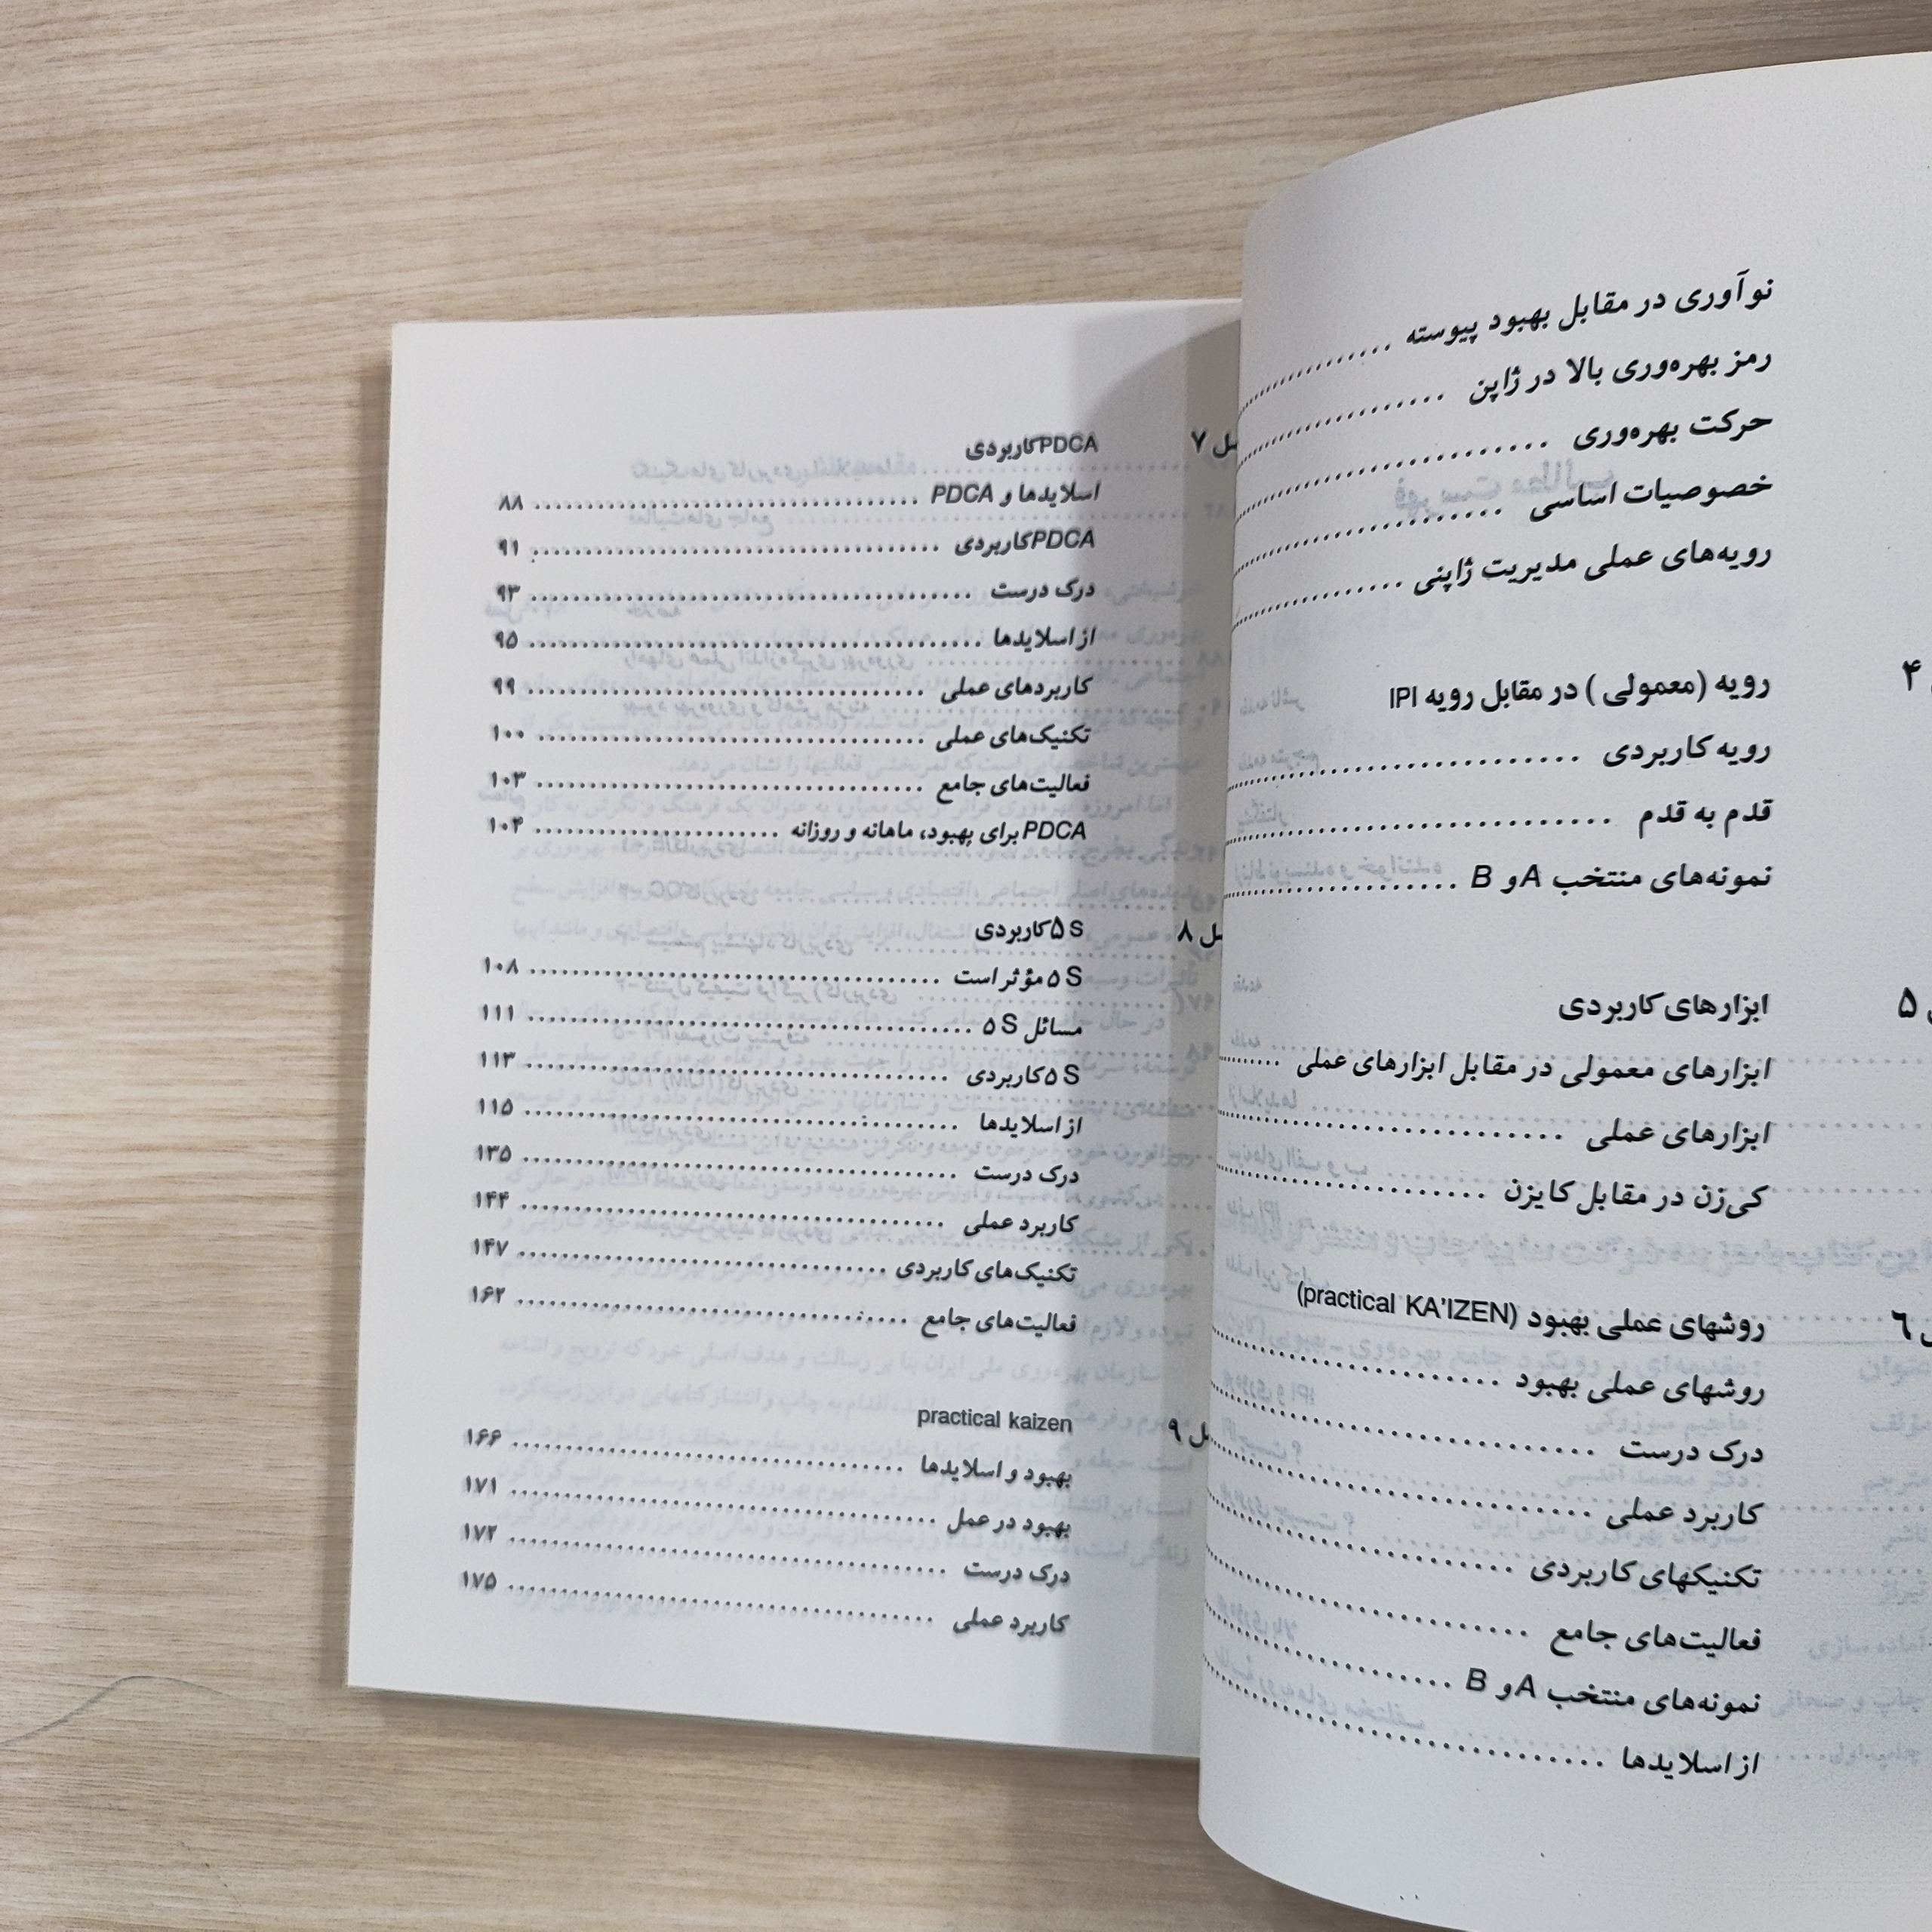 نوآوری در مقابل بهبود پیوسته
رمز بهره‌وری بالا در ژاپن
حرکت بهره‌وری
خصوصیات اساسی
رویه‌های عملی مدیریت ژاپنی
۴
رویه (معمولی) در مقابل رویه IPI
رویه کاربردی
قدم به قدم
نمونه‌های منتخب A و B
۵
ابزارهای کاربردی
ابزارهای معمولی در مقابل ابزارهای عملی
ابزارهای عملی
کی‌زن در مقابل کایزن
۶
روشهای عملی بهبود (practical KA'IZEN)
روشهای عملی بهبود
درک درست
کاربرد عملی
تکنیکهای کاربردی
فعالیت‌های جامع
نمونه‌های منتخب A و B
از اسلایدها
۷
PDCA کاربردی
اسلایدها و PDCA ۸۸
PDCA کاربردی ۹۱
درک درست ۹۳
از اسلایدها ۹۵
کاربردهای عملی ۹۹
تکنیک‌های عملی ۱۰۰
فعالیت‌های جامع ۱۰۳
PDCA برای بهبود، ماهانه و روزانه ۱۰۴
۸
۵ S کاربردی
۵ S مؤثر است ۱۰۸
مسائل ۵ S ۱۱۱
۵ S کاربردی ۱۱۳
از اسلایدها ۱۱۵
درک درست ۱۳۵
کاربرد عملی ۱۴۴
تکنیک‌های کاربردی ۱۴۷
فعالیت‌های جامع ۱۶۲
۹
practical kaizen
بهبود و اسلایدها ۱۶۶
بهبود در عمل ۱۷۱
درک درست ۱۷۲
کاربرد عملی ۱۷۵